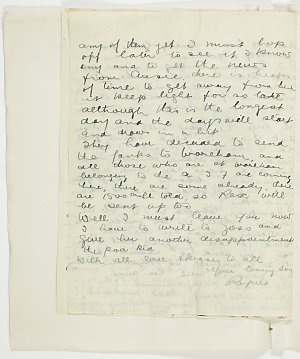 any of them yet I must hop
off later to see if I know
any and to get the news
from Aussie there is heaps
of time to get away from here
it keeps light for so late
although this is the longest
day and the days will start
and draw in a bit
They have decided to send
the to Wareham and
all those who are at
belonging to the A I F are coming
here, there are some already there
are 1500 all told so Rose will
be sent up too
Well I must leave you now
I have to write to Joss and
give her another disappointment
the poor kid
With all love &kisses to all
Your loving son